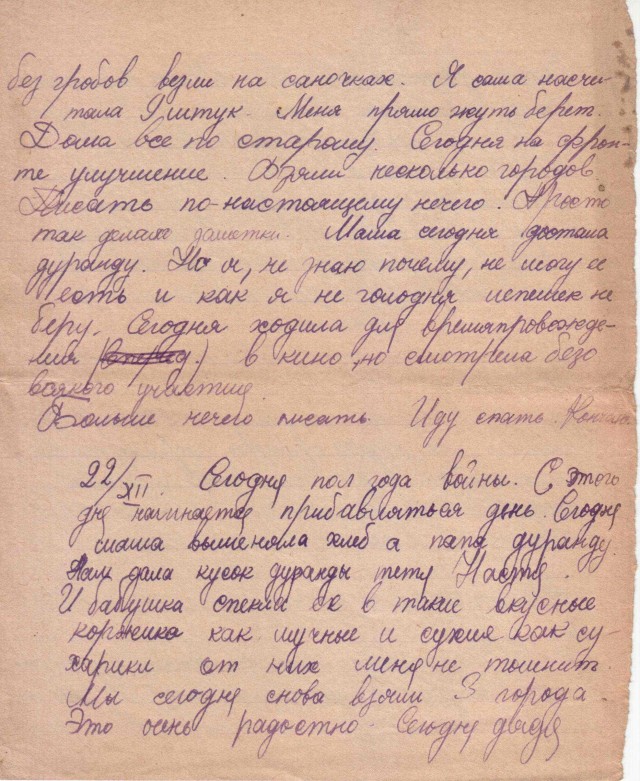 без гробов везли на саночках. Я сама насчи-
тала 9 штук. Меня прямо жуть берет.
Дома все по старому. Сегодня на фрон-
те улучшение. Взяли несколько городов.
Писать по-настоящему нечего. Просто
так делаю заметки. Мама сегодня достала
дуранду. Но я, не знаю почему, не могу ее
есть и как я не голодня лепешек не
беру. Сегодня ходила для времяпровожде-
ния в кино, но смотрела безо
всякого участия.
Больше нечего писать. Иду спать. Кончаю
22/XII. Сегодня пол года войны. С этого
дня начинается прибавляться день. Сегодня
мама выменяла хлеб а папа дуранду.
Нам дала кусок дуранды тетя Настя.
И бабушка спекла ее в такие вкусные
коржики как мучные и сухие как су-
харики от них меня не тошнит.
Мы сегодня снова взяли 3 города.
Это очень радостно. Сегодня дядя